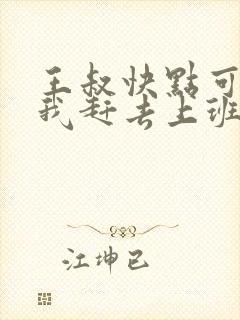 王叔快點可
我赶去上班
江坤已